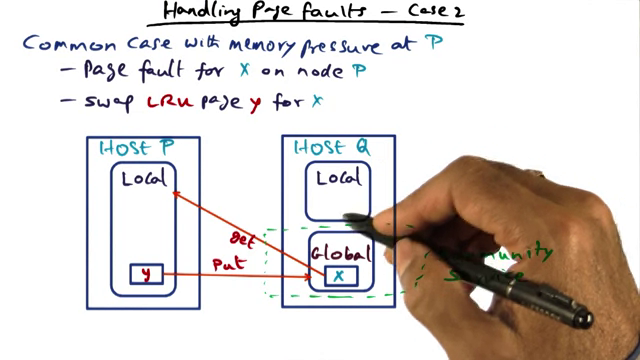 Handling Page faults - Case 2
Common case with memory pressure at P
- Page fault for X on node P
- swap LRU page y for X
HOST P
HOST Q
Local
Local
Get
Global
Put
y
X